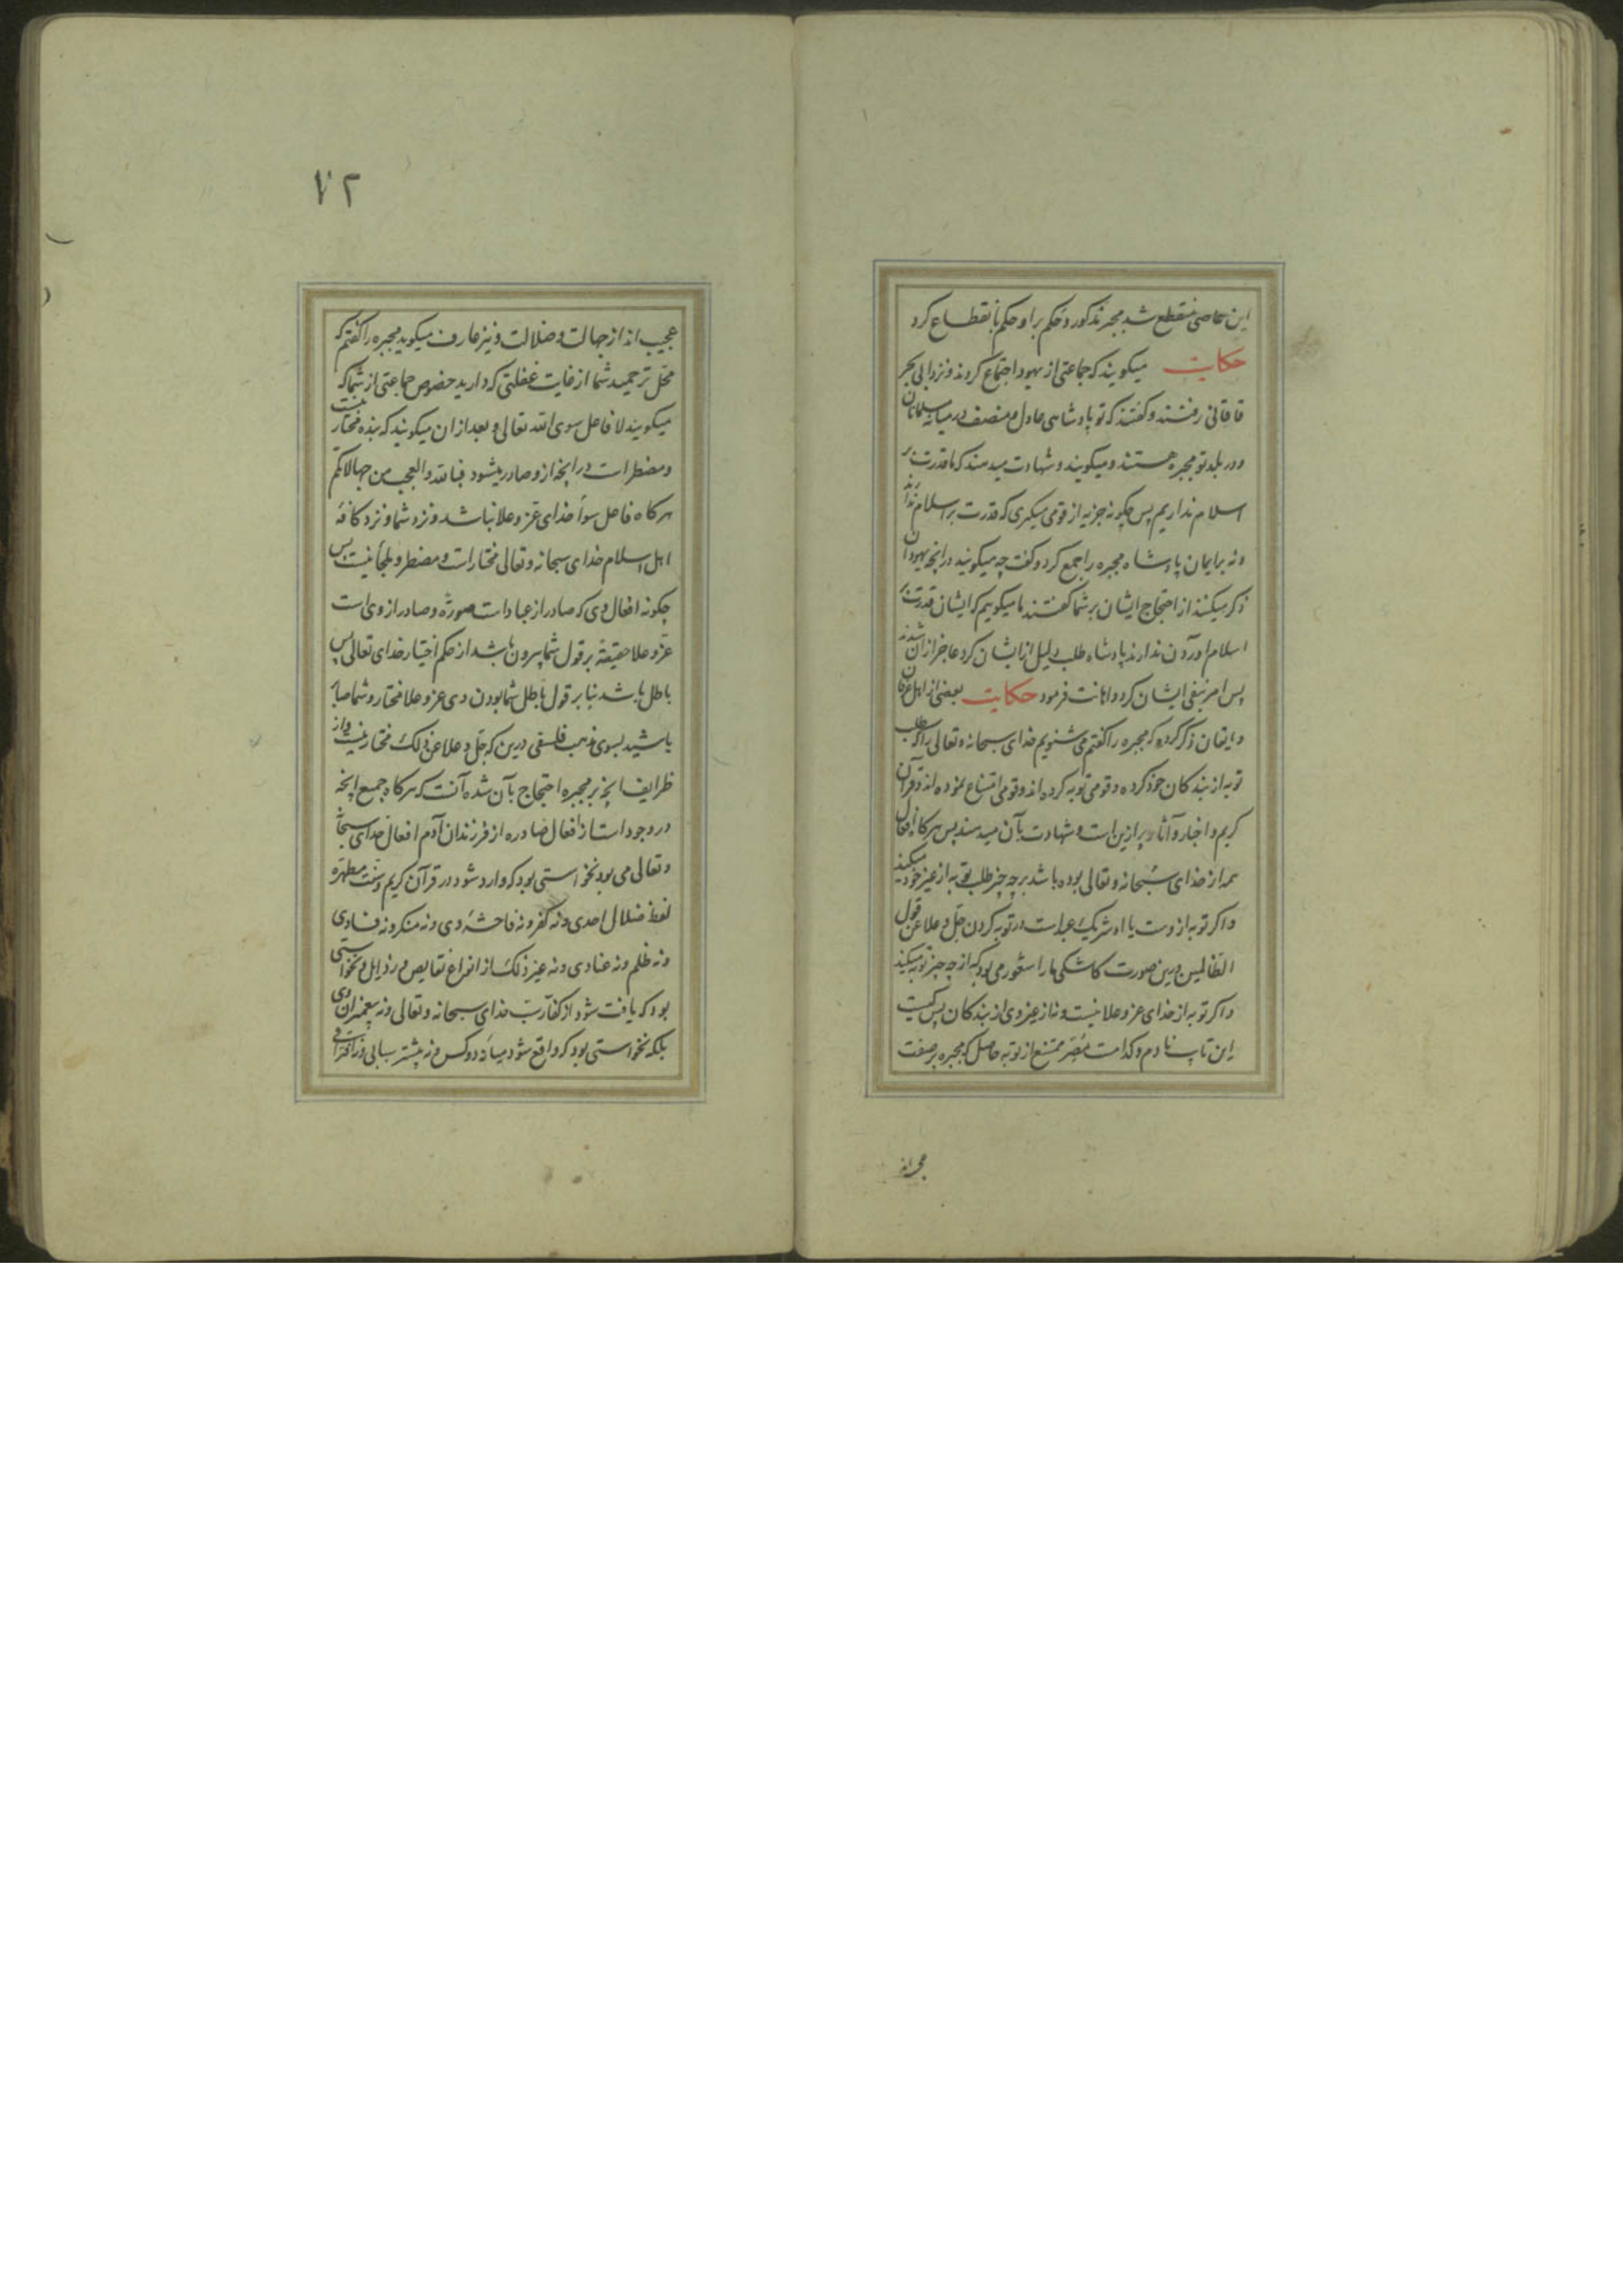 این عاصی منقطع شد مجبر مذکور و حکم بر او حکم بانقطاع کرد
حکایت میکویند که جماعتی از یهود اجتماع کردند و نزد ابی بحر
قاقانی رفتند و کفتند که تو پادشاهی عادل و منصف در میانه مسلمانان
و در بلد تو مجبره هستند و میکویند و شهادت میدهند که ما قدرت بر
اسلام نداریم پس چکونه جزیه از قومی میکیری که قدرت بر اسلام ندارند
و نه بر ایمان پادشاه مجبره را جمع کرد و کفت چه میکویند در آنچه یهودان
ذکر میکنند از احتجاج ایشان بر شما کفتند ما میکوییم که ایشان قدرت بر
اسلام اوردن ندارند پادشاه طلب دلیل از ایشان کرد عاجز از آن شدند
پس امر بنفی ایشان کرد و اهانت فرمود حکایت بعضی از اهل عرفان
و ایقان ذکر کرده که مجبره را کفتم می شنویم خدای سبحانه و تعالی را که طلب
توبه از بندکان خود کرده و قومی توبه کرده اند و قومی امتناع نموده اند و قرآن
کریم و اخبار و آثار پر ازین است و شهادت بآن میدهند پس هر کاه افعال
همه از خدای سبحانه و تعالی بوده باشد بر چه چیز طلب توبه از غیر خود میکند
و اکر توبه از وست یا او شریک عباد است در توبه کردن جل و علا عن قول
الظالمین درین صورت کاشکی ما را شعور می بود که از چه چیز توبه میکند
و اکر توبه از خدای عز و علا نیست و نه از غیر وی از بندکان پس کیست
این تایب نادم و کدامست مصر ممتنع از توبه حاصل که مجبره بر صفت
۷۲
عجیب اند از جهالت و ضلالت و نیز عارف میکوید مجبره را کفتم که
محل ترحمید شما از غایت غفلتی که دارید خصوص جماعتی از شما که
میکویند لا فاعل سوی الله تعالی و بعد از ان میکویند که بنده مختار نیست
و مضطر است در انچه ازو صادر میشود فبالله و العجب من جهالاتکم
هر کاه فاعل سوا خدای عز و علا نباشد و نزد شما و نزد کافه
اهل اسلام خدای سبحانه و تعالی مختار است و مضطر و ملجا نیست پس
چکونه افعال وی که صادر از عباد است صورة و صادر از وی است
عز و علا حقیقة بر قول شما بیرون باشد از حکم اختیار خدای تعالی پس
باطل باشد بنا بر قول باطل شما بودن وی عز و علا مختار و شما
باشید بسوی مذهب فلسفی درین که جل و علا عن ذلک مختار نیست و از
ظرایف انچه بر مجبره احتجاج بآن شده آنست که هر کاه جمیع انچه
در وجود است از افعال صادره از فرزندان آدم افعال خدای سبحانه
و تعالی می بود نخواستی بود که وارد شود در قرآن کریم و سنت مطهره
لفظ ضلال احدی و نه کفر و نه فاحشه وی و نه منکر و نه فسادی
و نه ظلم و نه عنادی و نه غیر ذلک از انواع نقایص و رذایل و نخواستی
بود که یافت شود از کفار سب خدای سبحانه و تعالی و نه پیغمبران وی
بلکه نخواستی بود که واقع شود میانه دو کس و نه بیشتر